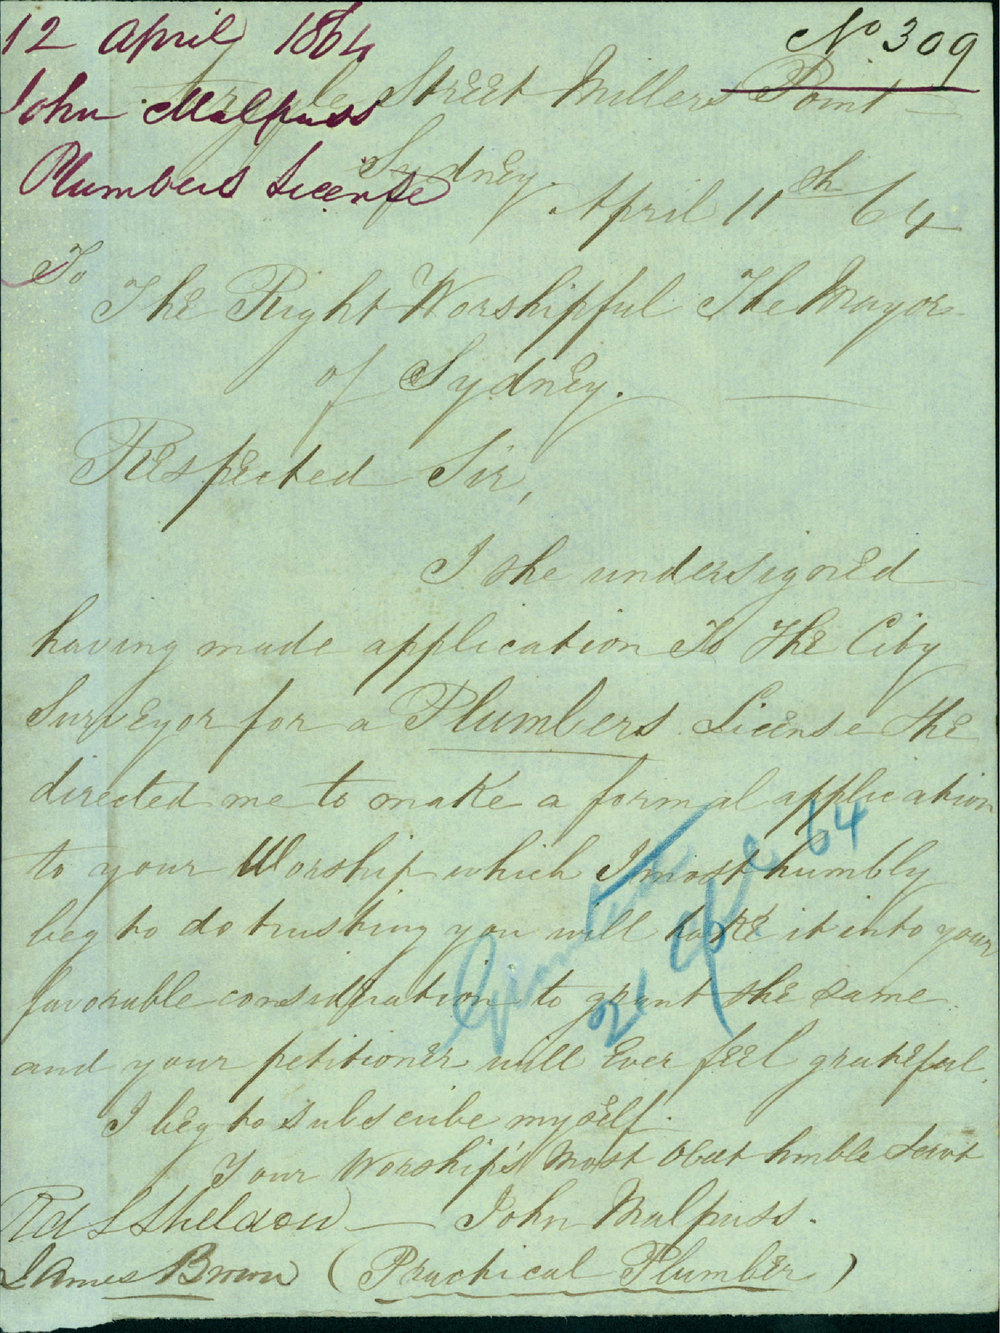 12 April 1864
No 309
John Malpass
Plumbers License
Argyle Street Millers Point
Sydney
April 11th 64
To
The Right Worshipful The Mayor
of Sydney.
Respected Sir,
I the undersigned
having made application To The City
Surveyor for a Plumbers License the
directed me to make a formal application
to your Worship which I most humbly
beg to do trusting you will take it into your
favorable consideration to grant the same
and your petitioner will ever feel grateful.
I beg to subscribe myself.
Your Worship's Most Obdt hmble Servt
John Malpass.
Sheldon
James Brown (Practical Plumber)
Granted
21 Apl 64